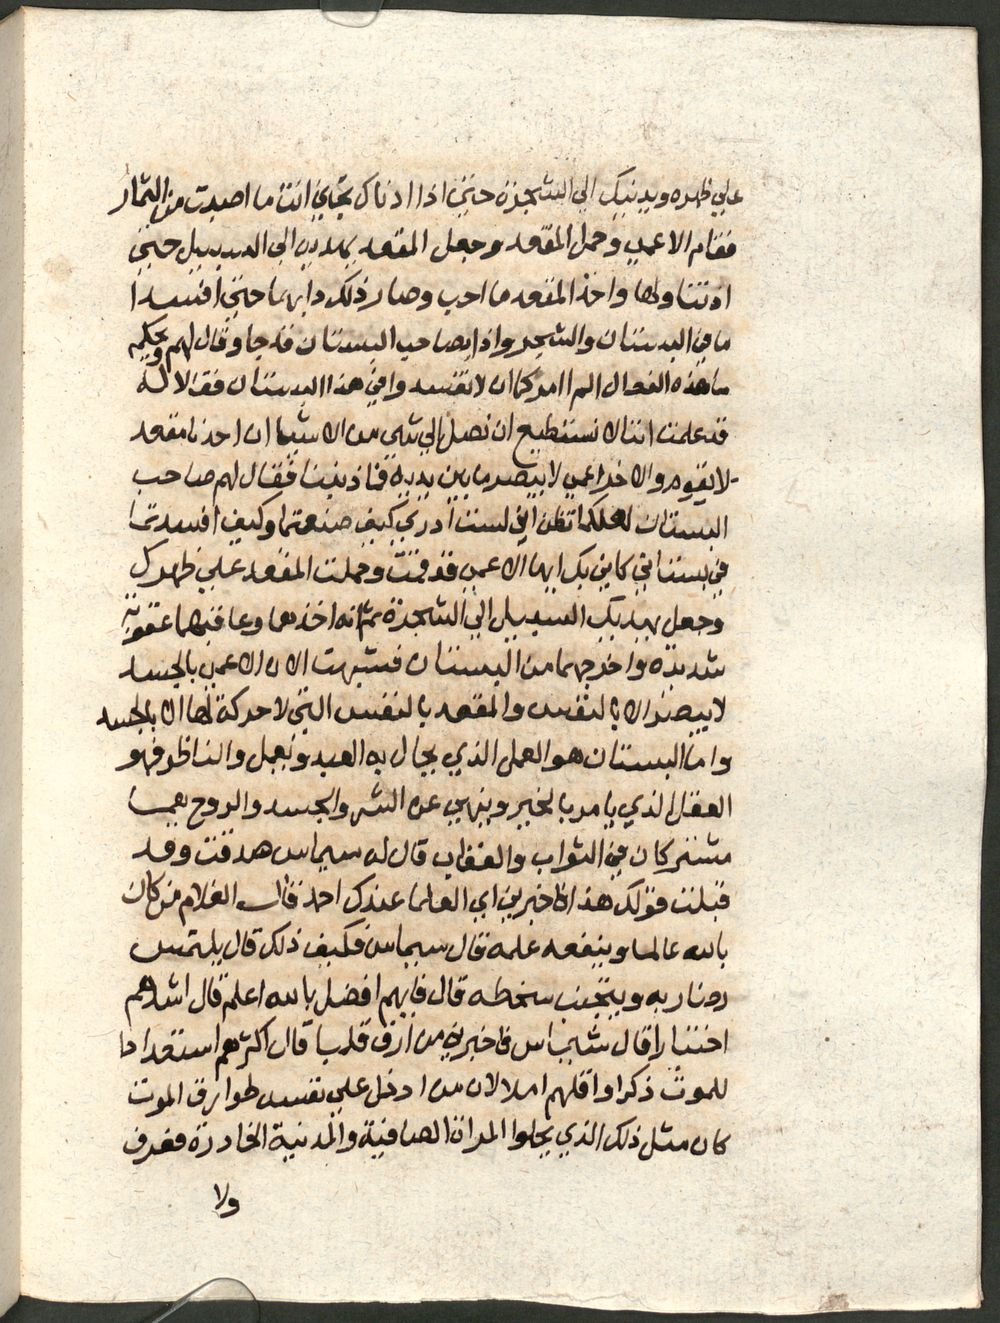 علي ظهره ويدنيك الي الشجرة حتي اذا ادناك تجني انت ما اصبت من الثمار
فقام الاعمي وحمل المقعد وجعل المقعد يهديه الي السبيل حتي
ادتناولها واخذ المقعد ما احب وصار ذلك دابهما حتي افسدا
ما في البستان والشجر واذا بصاحب البستان قد جا وقال لهم ويحكم
ما هذه الفعال الم اامركما ان لا تفسدوا في هذا البستان فقالا له
قد علمت اننا لا نستطيع ان نصل الي شي من الاشيا ان احدنا مقعد
لا يقوم والاخر اعمي لا يبصر ما بين يديه فما ذنبنا فقال لهم صاحب
البستان لعلكما تظن اني لست ادري كيف صنعتما وكيف افسدتما
في بستاني كاني بك ايها الاعمي قد قمت وحملت المقعد علي ظهرك
وجعل يهديك السبيل الي الشجرة ثم انه اخذهما وعاقبهما عقوبة
شديدة واخرجهما من البستان فشبهت الان الاعمي بالجسد
لا يبصر الا بالنفس والمقعد بالنفس التي لا حركة لها الا بالجسد
واما البستان هو العمل الذي يجال به العبد ويعمل والناظر فهو
العقل الذي يامر بالخير وينهي عن الشر والجسد والروح بهما
مشتركان في الثواب والعقاب قال له سيماس صدقت وقد
قبلت قولك هذا فاخبرني اي العلما عندك احمد قال الغلام من كان
بالله عالما وينفعه علمه قال سيماس فكيف ذلك قال يلتمس
رضا ربه ويتجنب سخطه قال فايهم افضل بالله اعلم قال اشدهم
اختبارا قال شيماس فاخبرني من ارق قلبا قال اكثرهم استعدادا
للموت ذكرا واقلهم املا لان من ادخل علي نفسه طوارق الموت
كان مثل ذلك الذي يجلوا المراة الصافية والدنية الخادرة فعرف
ولا